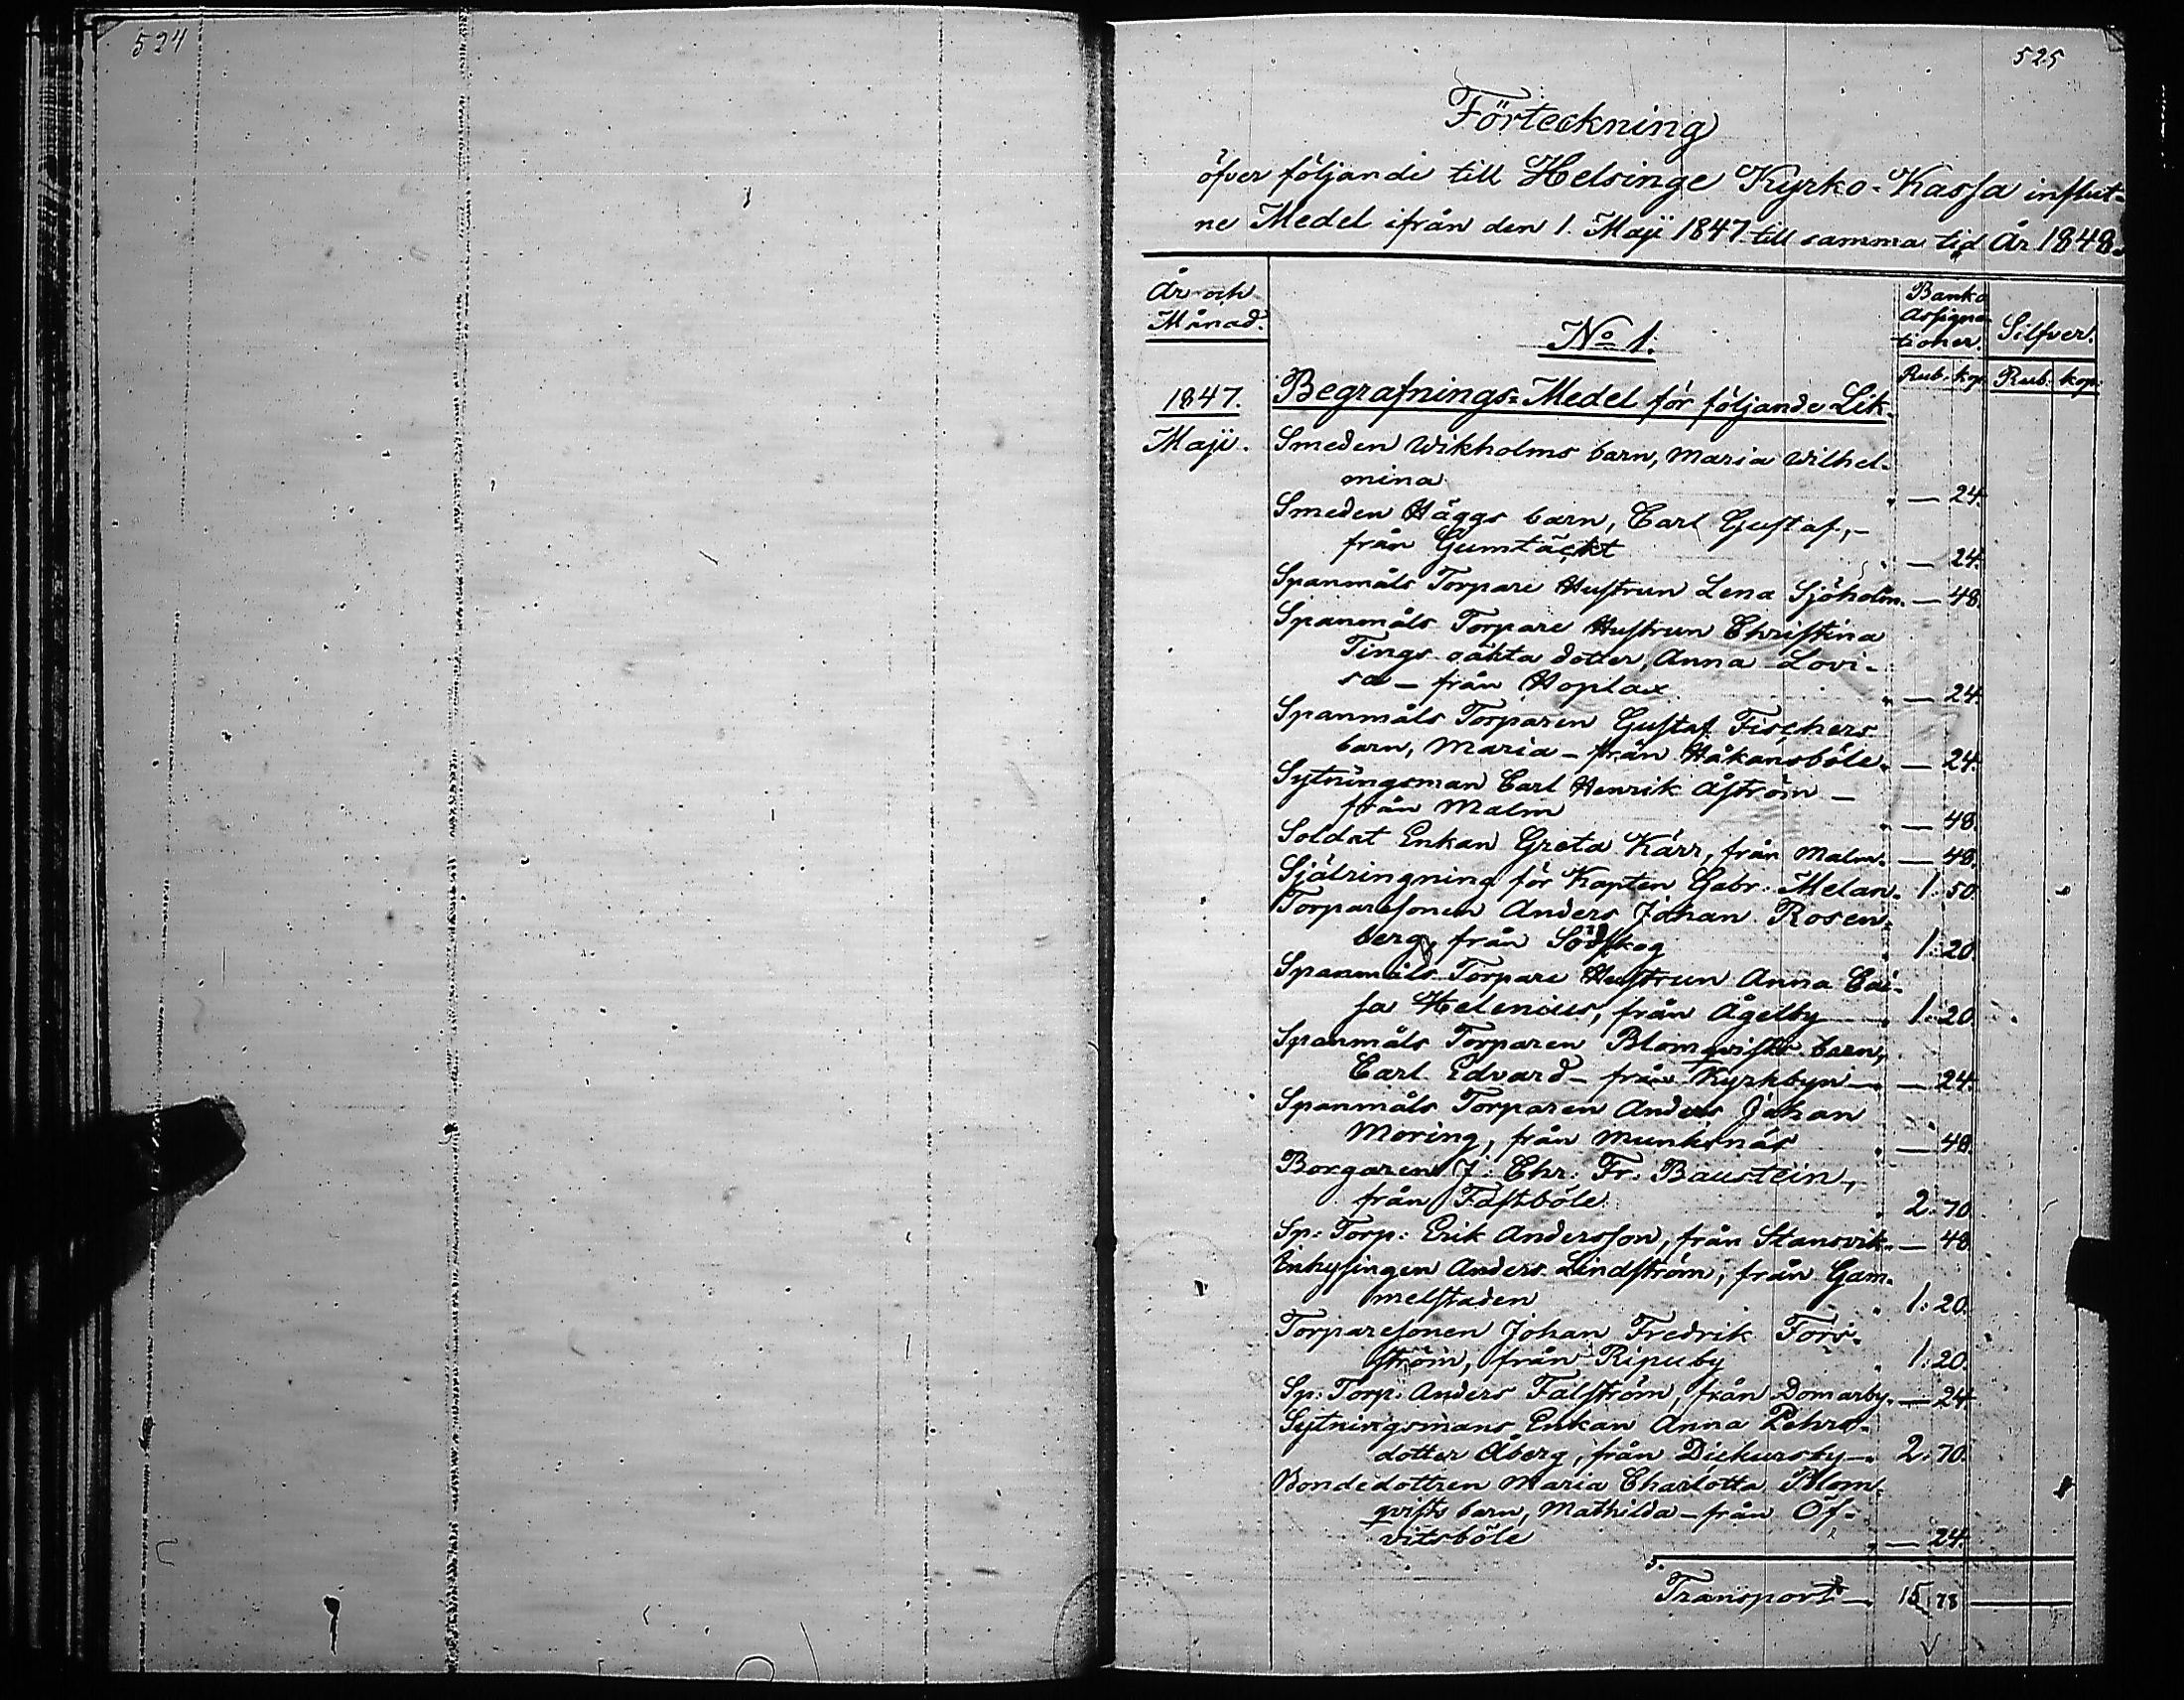 524
525
Förteckning
öfver följande till Helsinge Kyrko-Kassa influt-
ne Medel ifrån den 1. Maji 1847 till samma tid År 1848.
År och Månad.
No 1.
Banko Assignationer. Silfver.
Rub. kop. Rub. kop.
1847. Begrafnings-Medel för följande Lik.
Maji. Smeden Wikholms barn, Maria Wilhel-
mina — 24.
Smeden Häggs barn, Carl Gustaf, -
från Gumtäckt — 24.
Spanmåls Torpare Hustrun Lena Sjöholm. — 48.
Spanmåls Torpare Hustrun Christina
Tings oäkta dotter, Anna Lovi-
sa - från Hoplax — 24.
Spanmåls Torparen Gustaf Fischers
barn, Maria - från Håkansböle. — 24.
Sytningsman Carl Henrik Åström —
från Malm — 48.
Soldat Enkan Greta Kärr, från Malm. — 48.
Själringning för Kapten Gabr: Melan. 1: 50.
Torparesonen Anders Johan Rosen-
berg, från Sodskog 1: 20.
Spanmåls Torpare Hustrun Anna Cai-
sa Helenius, från Ågelby 1: 20.
Spanmåls Torparen Blomqvists barn,
Carl Edvard - från Kyrkbyn — 24.
Spanmåls Torparen Anders Johan
Moring, från Munksnäs — 48.
Borgaren J: Chr: Fr: Baustein,
från Fastböle 2: 70.
Sp: Torp: Erik Andersson, från Stansvik. — 48.
Inhysingen Anders Lindström, från Gam-
melstaden 1: 20.
Torparesonen Johan Fredrik Fors-
ström, från Ripuby 1: 20.
Sp: Torp: Anders Falström, från Domarby. — 24.
Sytningsmans Enkan Anna Pehrs-
dotter Åberg, från Dickursby — 2: 70.
Bondedottren Maria Charlotta Blom-
qvists barn, Mathilda - från Öf-
vitsböle — 24.
Transport — 15 78